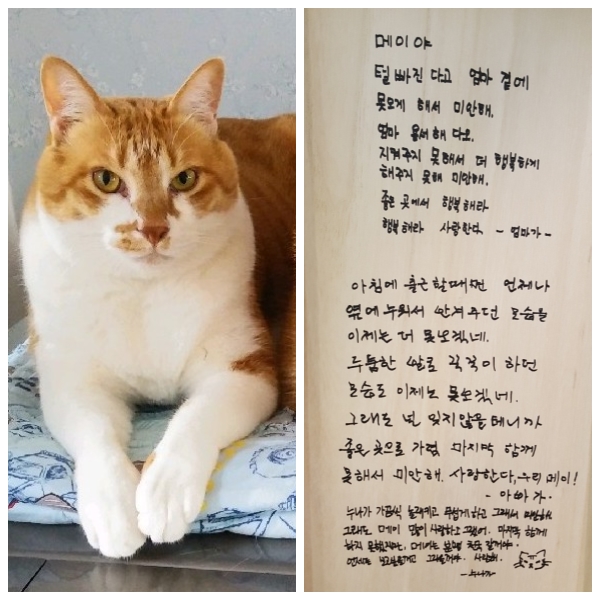 메이야
털 빠진다고 엄마 곁에
못오게 해서 미안해.
엄마 용서해 다오.
지켜주지 못해서 더 행복하게
해주지 못해 미안해.
좋은 곳에서 행복해라
행복해라 사랑한다 - 엄마가 -
아침에 출근할때면 언제나
옆에 누워서 반겨주던 모습을
이제는 더 못보겠네.
두툼한 발로 꾹꾹이 하던
모습도 이제는 못보겠네.
그래도 널 잊지않을테니까
좋은 곳으로 가렴 마지막 함께
못해서 미안해. 사랑한다, 우리 메이!
- 아빠가 -
누나가 가끔씩 놀래키고 무섭게하고 그래서 미안해
그래도 메이 많이 사랑하고 그랬어. 마지막 함께
하지 못했지만. 메이는 천국 갈거야.
사랑해.
- 누나가